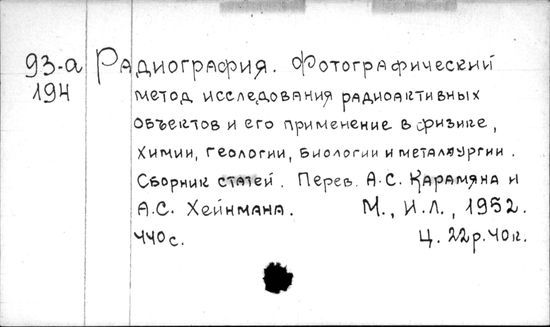 93-а Радиография. Фотографический
194 метод исследования радиоактивных
объектов и его применение в физике,
химии, геологии, биологии и металлургии.
Сборник статей. Перев. А.С. Карамяна и
А.С. Хейнмана. М., И.Л., 1952.
440 с. Ц. 22р.40к.